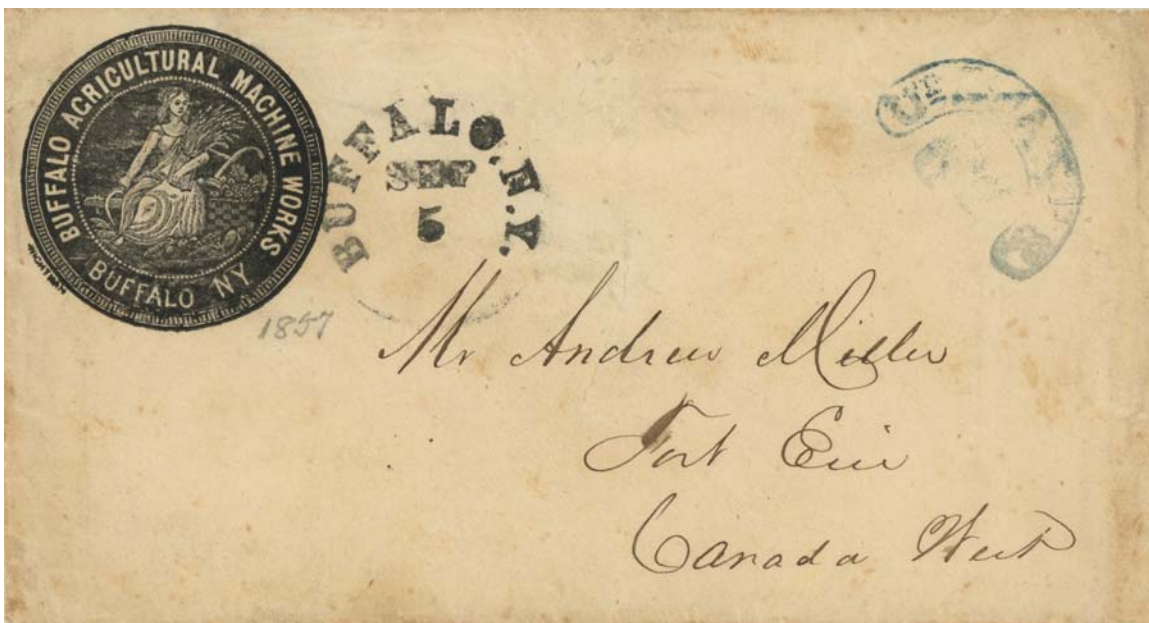 BUFFALO AGRICULTURAL MACHINE WORKS
BUFFALO NY
BUFFALO. N.Y.
SEP
5
1857
Mr Andrew Miller
Fort Erie
Canada West